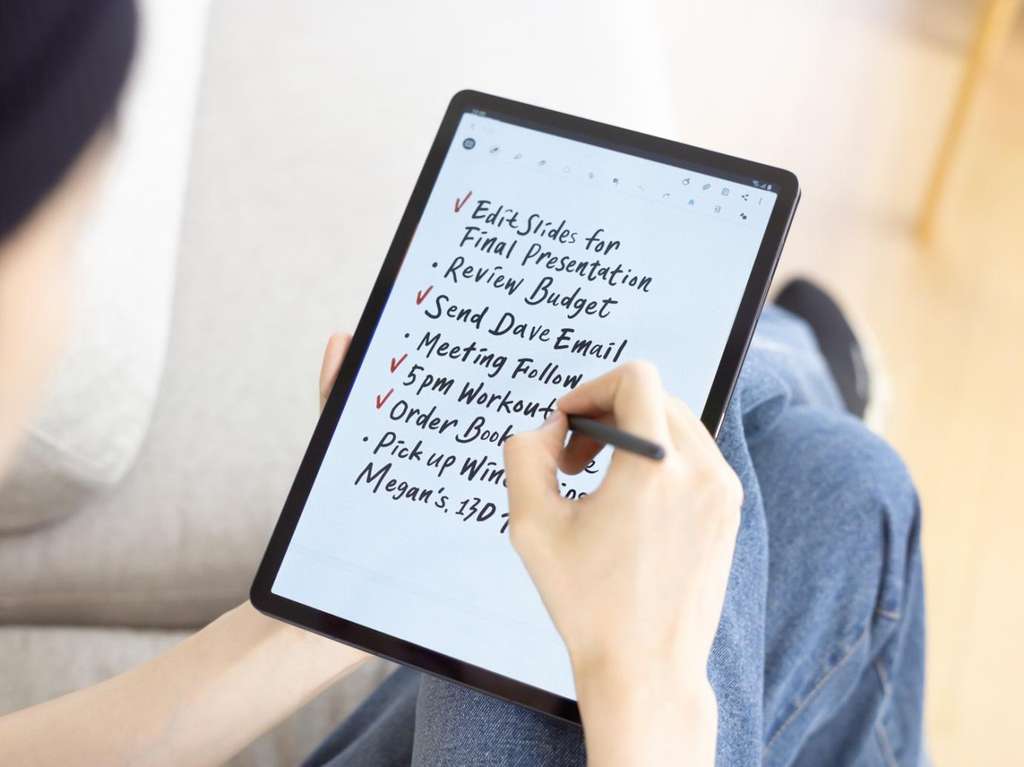 ✓ Edit Slides for
Final Presentation
• Review Budget
✓ Send Dave Email
• Meeting Follow
✓ 5pm Workout
✓ Order
• Pick up
Megan's, 13D